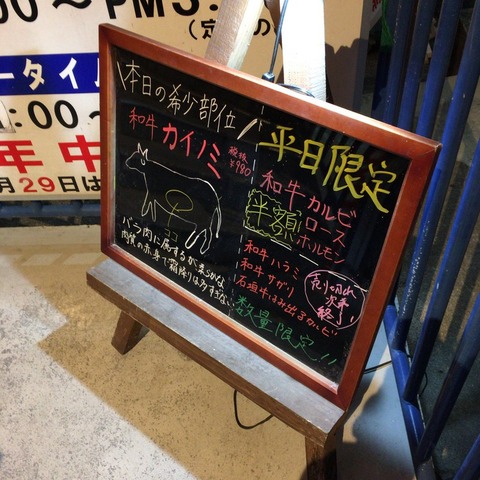 00~PM5:
(定
ータイム
:00~
年中
月29日は
\本日の希少部位/
和牛カイノミ
税抜
¥980
ココ
バラ肉に属するが柔らかな
肉質の赤身で霜降りは多すぎない
平日限定
和牛カルビ
半額 ロース
ホルモン
和牛ハラミ
和牛サガリ
石垣牛はみ出るカルビ
売り切れ
次第
終了
数量限定!!